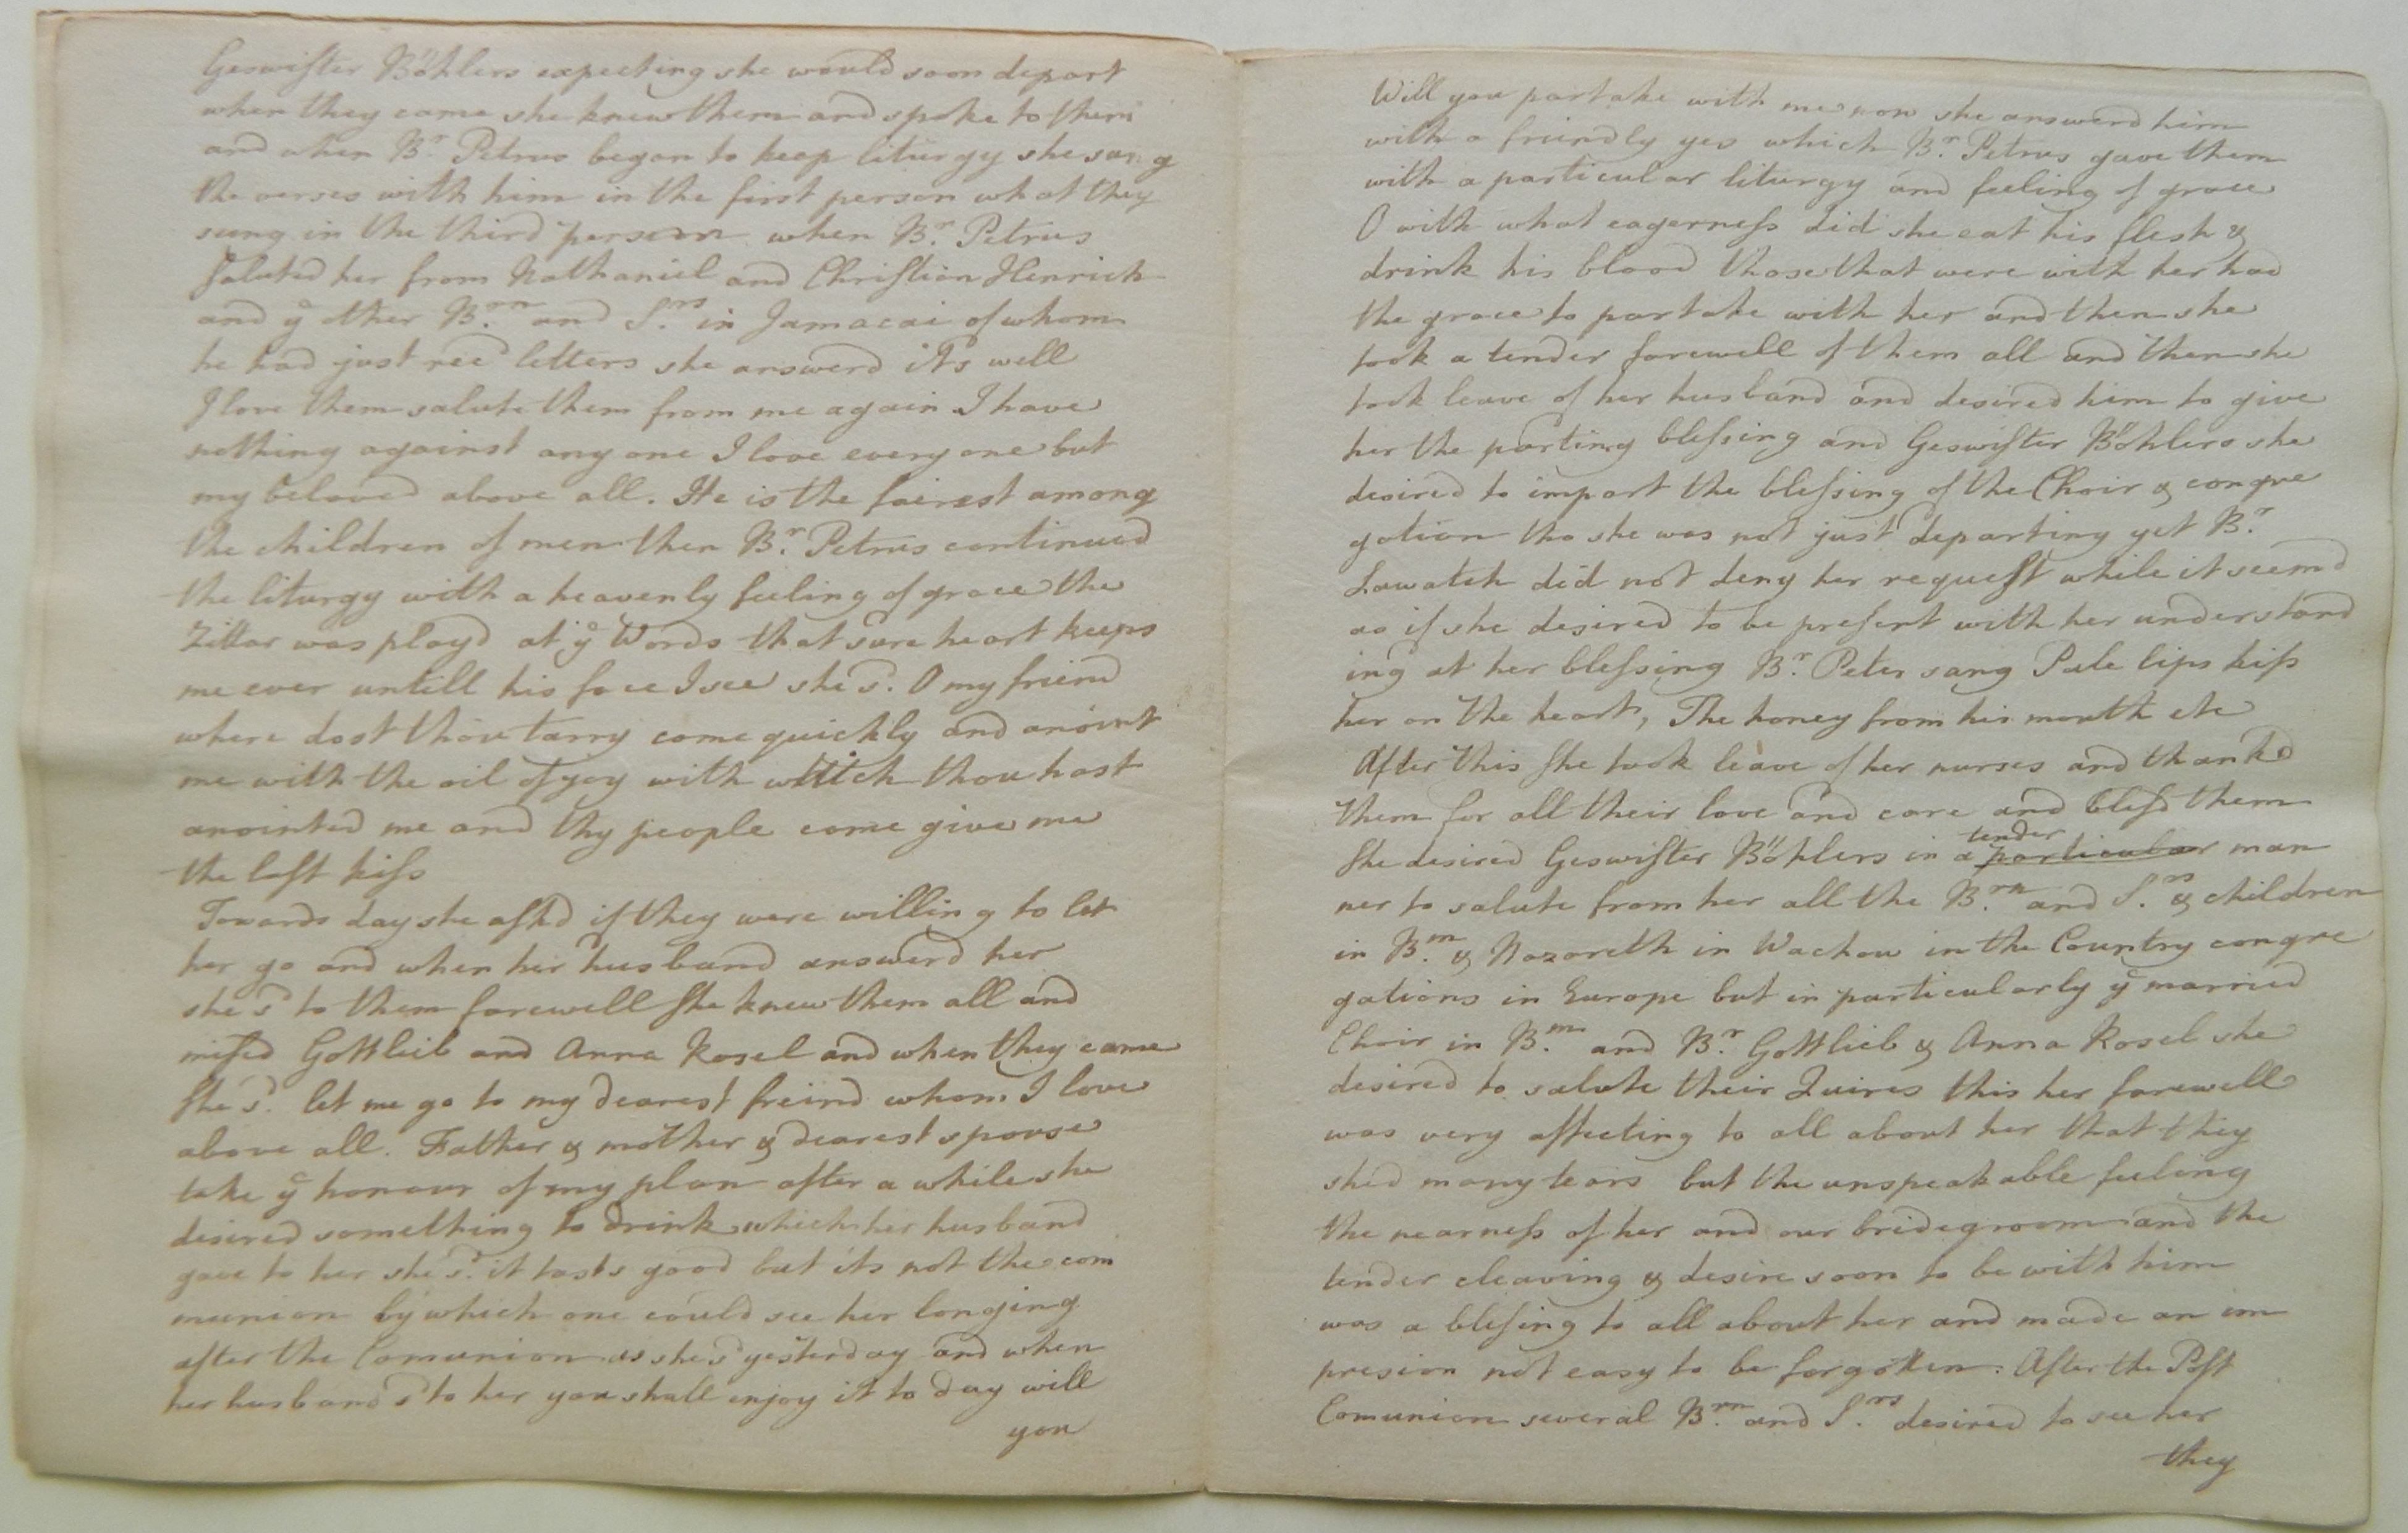 Geswister Böhlers expecting she would soon depart
when they came she knew them and spoke to them
and when Br. Petrus began to keep liturgy she sang
the verses with him in the first person what they
sung in the third person when Br. Petrus
saluted her from Nathaniel and Christian Henrich
and ye ther Brn. and Srs. in Jamacai of whom
he had just recd letters she answerd it's well
I love them salute them from me again I have
nothing against any one I love every one but
my beloved above all. He is the fairest among
the children of men then Br. Petrus continued
the liturgy with a heavenly feeling of grace the
Zittar was playd at ye Words that sure heart keeps
me ever untill his face I see she sd. O my friend
where dost thou tarry come quickly and anoint
me with the oil of joy with which thou hast
anointed me and thy people come give me
the last kiss
Towards day she askd if they were willing to let
her go and when her husband answerd her
she sd to them farewell she knew them all and
missed Gottlieb and Anna Rosel and when they came
she sd. let me go to my dearest freind whom I love
above all. Father & mother & dearest spouse
take ye honour of my plan after a while she
desired something to drink which her husband
gave to her she sd. it tasts good but its not the com
munion by which one could see her longing
after the Comunion as she sd yesterday and when
her husband sd to her you shall enjoy it to day will
you
Will you partake with me now she answerd him
with a friendly yes which Br. Petrus gave them
with a particular liturgy and feeling of grace
O with what eagerness did she eat his flesh &
drink his blood those that were with her had
the grace to partake with her and then she
took a tender farewell of them all and then she
took leave of her husband and desired him to give
her the parting blessing and Geswister Böhlers she
desired to impart the blessing of the Choir & congre
gation tho she was not just departing yet Br.
Lawatch did not deny her request while it seemd
as if she desired to be present with her understand
ing at her blessing Br. Peter sang Pale lips kiss
her on the heart, The honey from his mouth etc
After this she took leave of her nurses and thankd
them for all their love and care and blessd them
She desired Geswister Böhlers in a particular tender man
ner to salute from her all the Brn. and Srs. & children
in Bm. & Nazareth in Wachow in the Country congre
gations in Europe but in particularly ye married
Choir in Bm. and Br. Gottlieb & Anna Rosel she
desired to salute their Quires this her farewell
was very affecting to all about her that they
shed many tears but the unspeakable feeling
the nearness of her and our bridegroom and the
tender cleaving & desire soon to be with him
was a blessing to all about her and made an im
presion not easy to be forgotten: After the Post
Comunion several Brn. and Srs. desired to see her
they